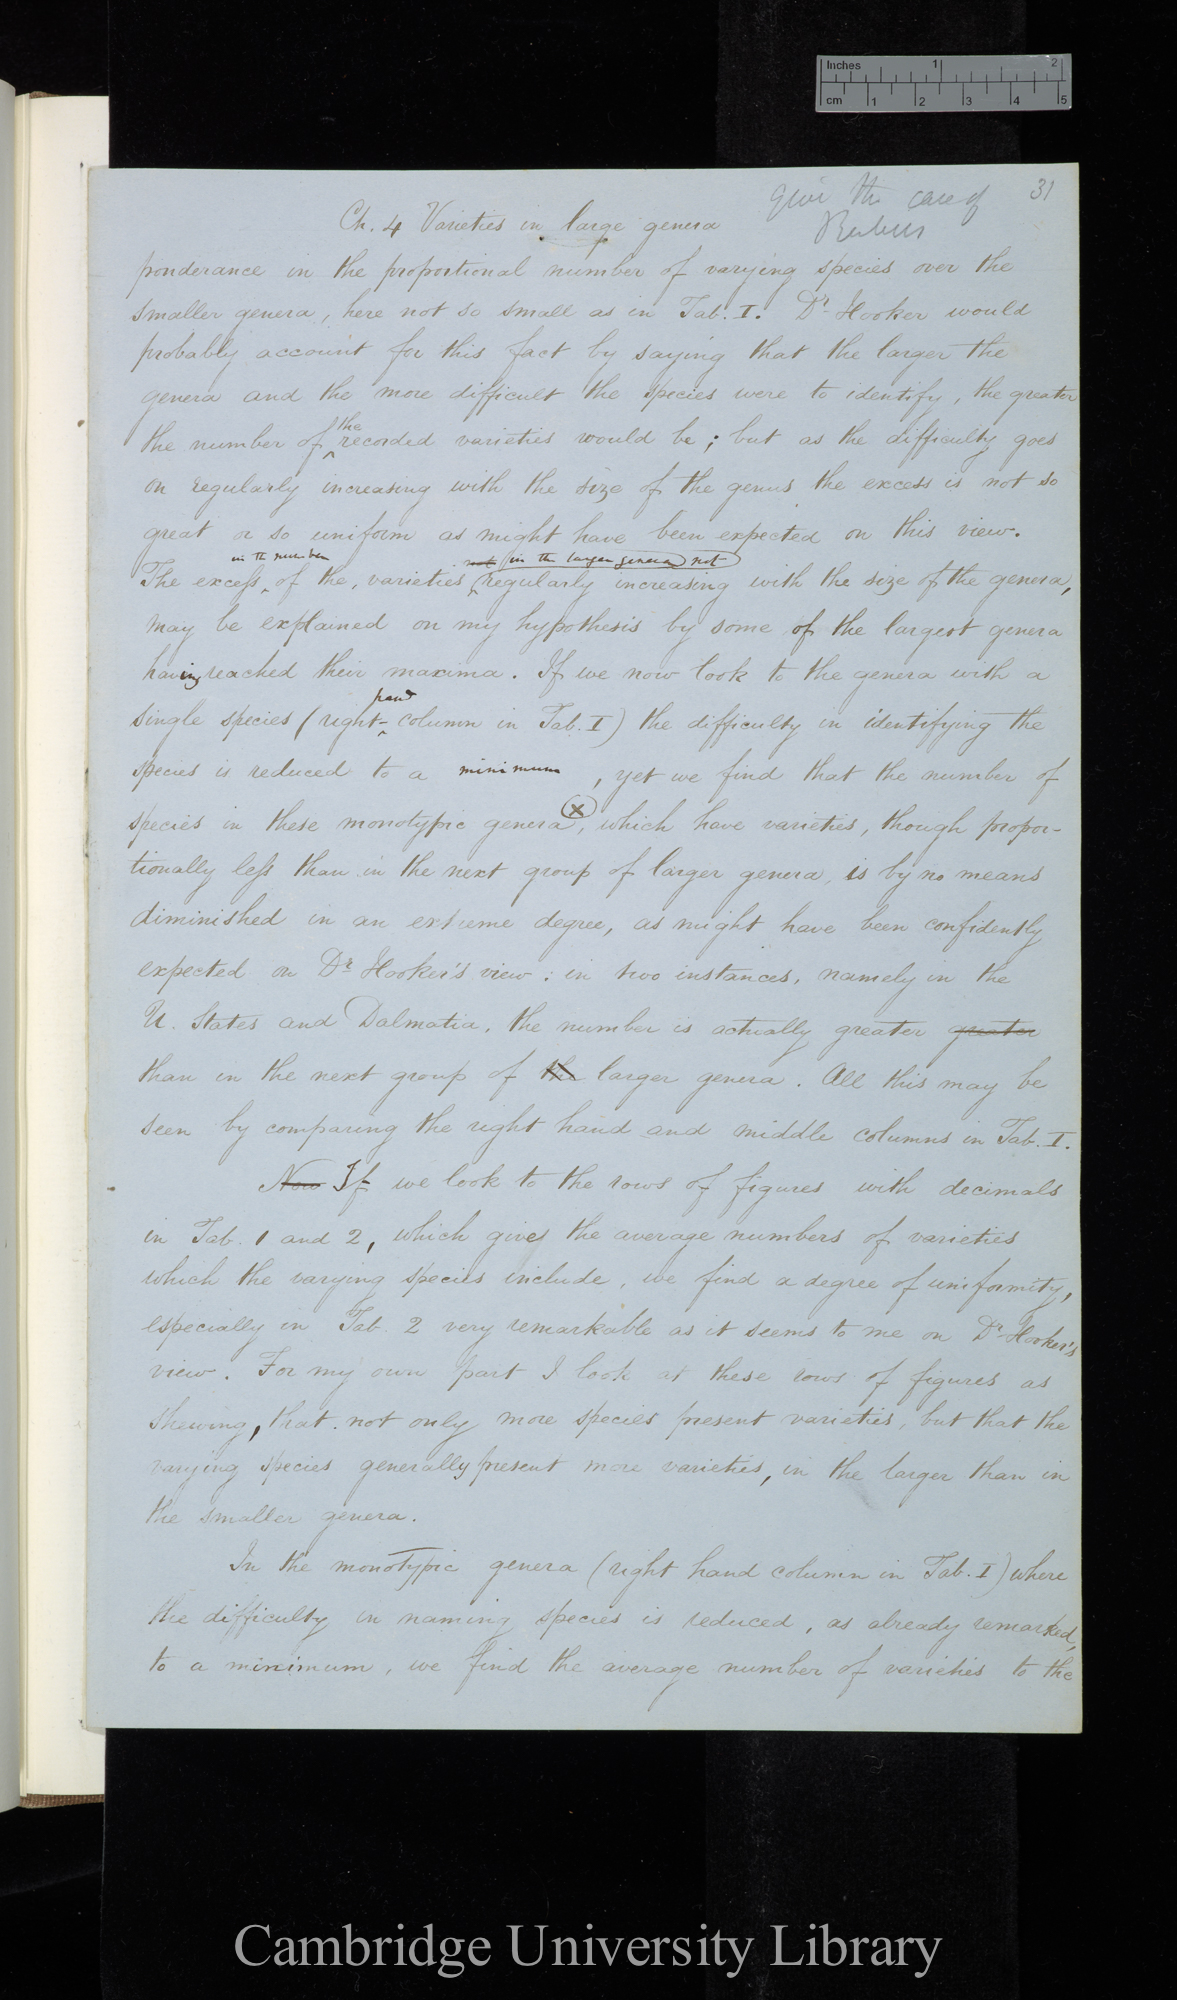 Inches 1 2
cm 1 2 3 4 5
give the case of
Rubus
31
Ch. 4 Varieties in large genera
ponderance in the proportional number of varying species over the
smaller genera, here not so small as in Tab. I. Dr. Hooker would
probably account for this fact by saying that the larger the
genera and the more difficult the species were to identify, the greater
the
the number of recorded varieties would be; but as the difficulty goes
on regularly increasing with the size of the genus the excess is not so
great or so uniform as might have been expected on this view.
in the number not in the larger genera not
The excess, of the, varieties regularly increasing with the size of the genera,
may be explained on my hypothesis by some of the largest genera
having reached their maxima. If we now look to the genera with a
hand
single species (right- column in Tab. I) the difficulty in identifying the
species is reduced to a minimum, yet we find that the number of
species in these monotypic genera, which have varieties, though propor-
tionally less than in the next group of larger genera, is by no means
diminished in an extreme degree, as might have been confidently
expected on Dr. Hooker's view: in two instances, namely in the
U. States and Dalmatia, the number is actually greater greater
than in the next group of the larger genera. All this may be
seen by comparing the right hand and middle columns in Tab. I.
Now If we look to the rows of figures with decimals
in Tab. 1 and 2, which gives the average numbers of varieties
which the varying species include, we find a degree of uniformity,
especially in Tab. 2 very remarkable as it seems to me on Dr. Hooker's
view. For my own part I look at these rows of figures as
shewing, that not only more species present varieties, but that the
varying species generally present more varieties, in the larger than in
the smaller genera.
In the monotypic genera (right hand column in Tab. I) where
the difficulty in naming species is reduced, as already remarked,
to a minimum, we find the average number of varieties to the
Cambridge University Library